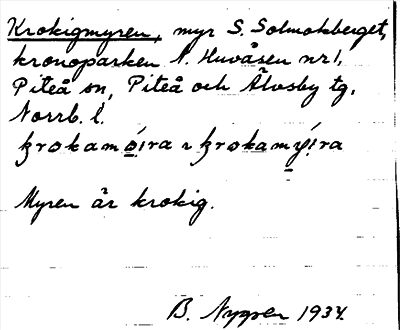 Krokigmyren, myr S. Solmokberget,
kronoparken N. Huvåsen nr 1,
Piteå sn, Piteå och Älvsby tg.
Norrb. l.
krokamo̲i̇ra ɿ krokamy̲i̇ra
Myren är krokig.
B. Nygren 1934.